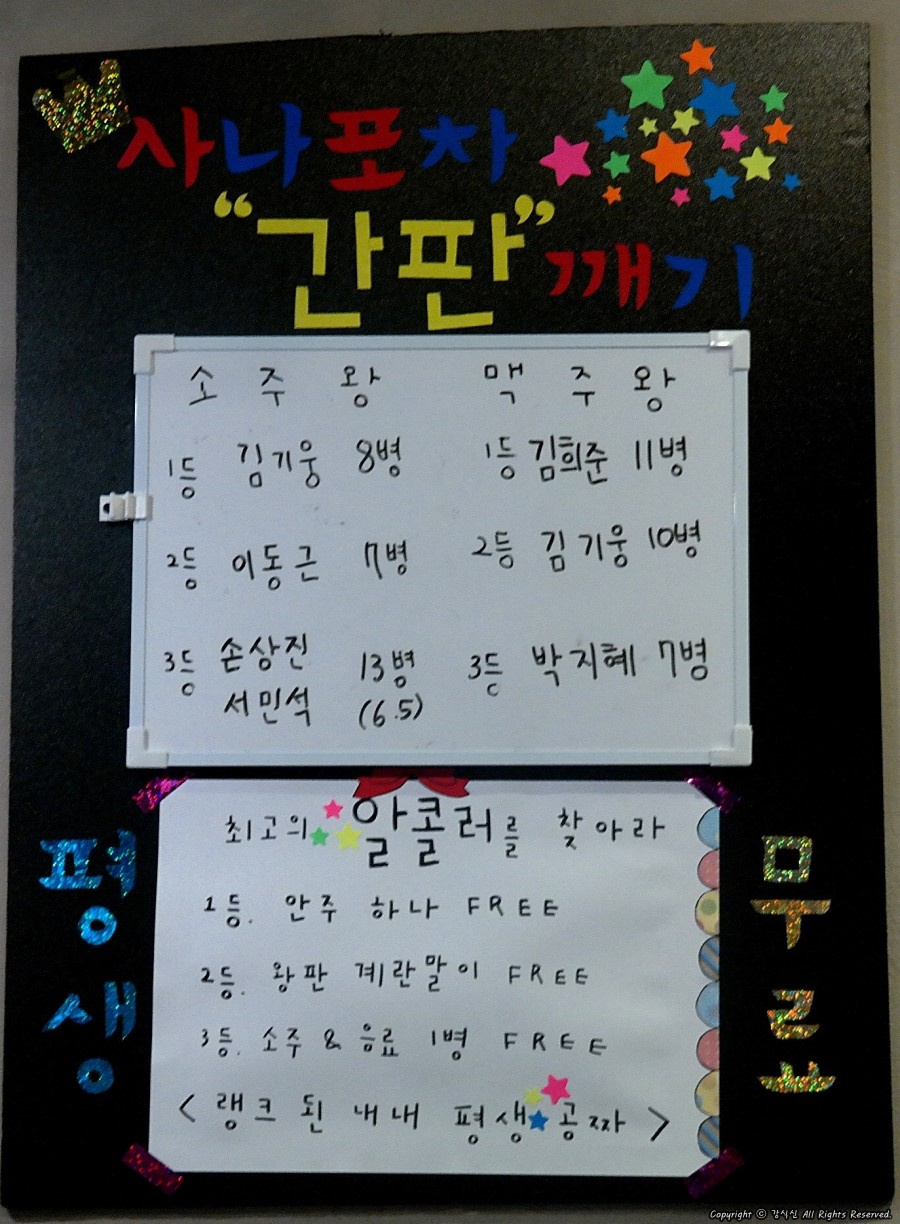 사나포차
“간판”깨기
소주왕 맥주왕
1등 김기웅 8병 1등 김희준 11병
2등 이동근 7병 2등 김기웅 10병
3등 손상진 13병 3등 박지혜 7병
서민석 (6.5)
최고의 알콜러를 찾아라
1등. 안주 하나 FREE
2등. 왕판 계란말이 FREE
3등. 소주 & 음료 1병 FREE
<랭크 된 내내 평생 공짜>
평생
무료
Copyright © 강식신 All Rights Reserved.